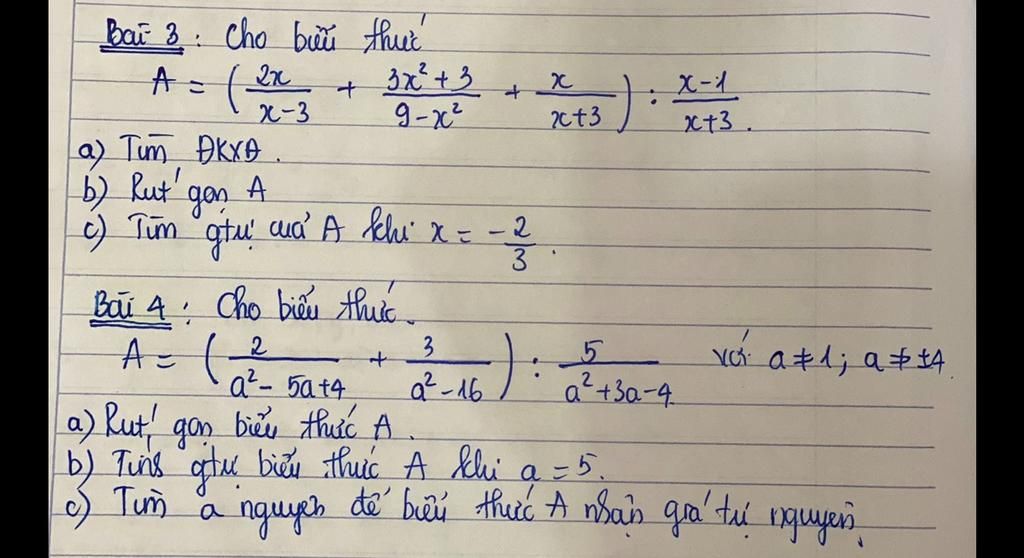 Bài 3 : Cho biểu thức
A = ( 2x/(x-3) + (3x² + 3)/(9-x²) + x/(x+3) ) : (x-1)/(x+3) .
a) Tìm ĐKXĐ .
b) Rút gọn A
c) Tìm gtrị của A khi x = -2/3 .
Bài 4 : Cho biểu thức .
A = ( 2/(a² - 5a+4) + 3/(a² -16) ) : 5/(a² +3a -4) với a ≠ 1 ; a ≠ ±4
a) Rút gọn biểu thức A .
b) Tính gtrị biểu thức A khi a = 5 .
c) Tìm a nguyên để biểu thức A nhận giá trị nguyên .